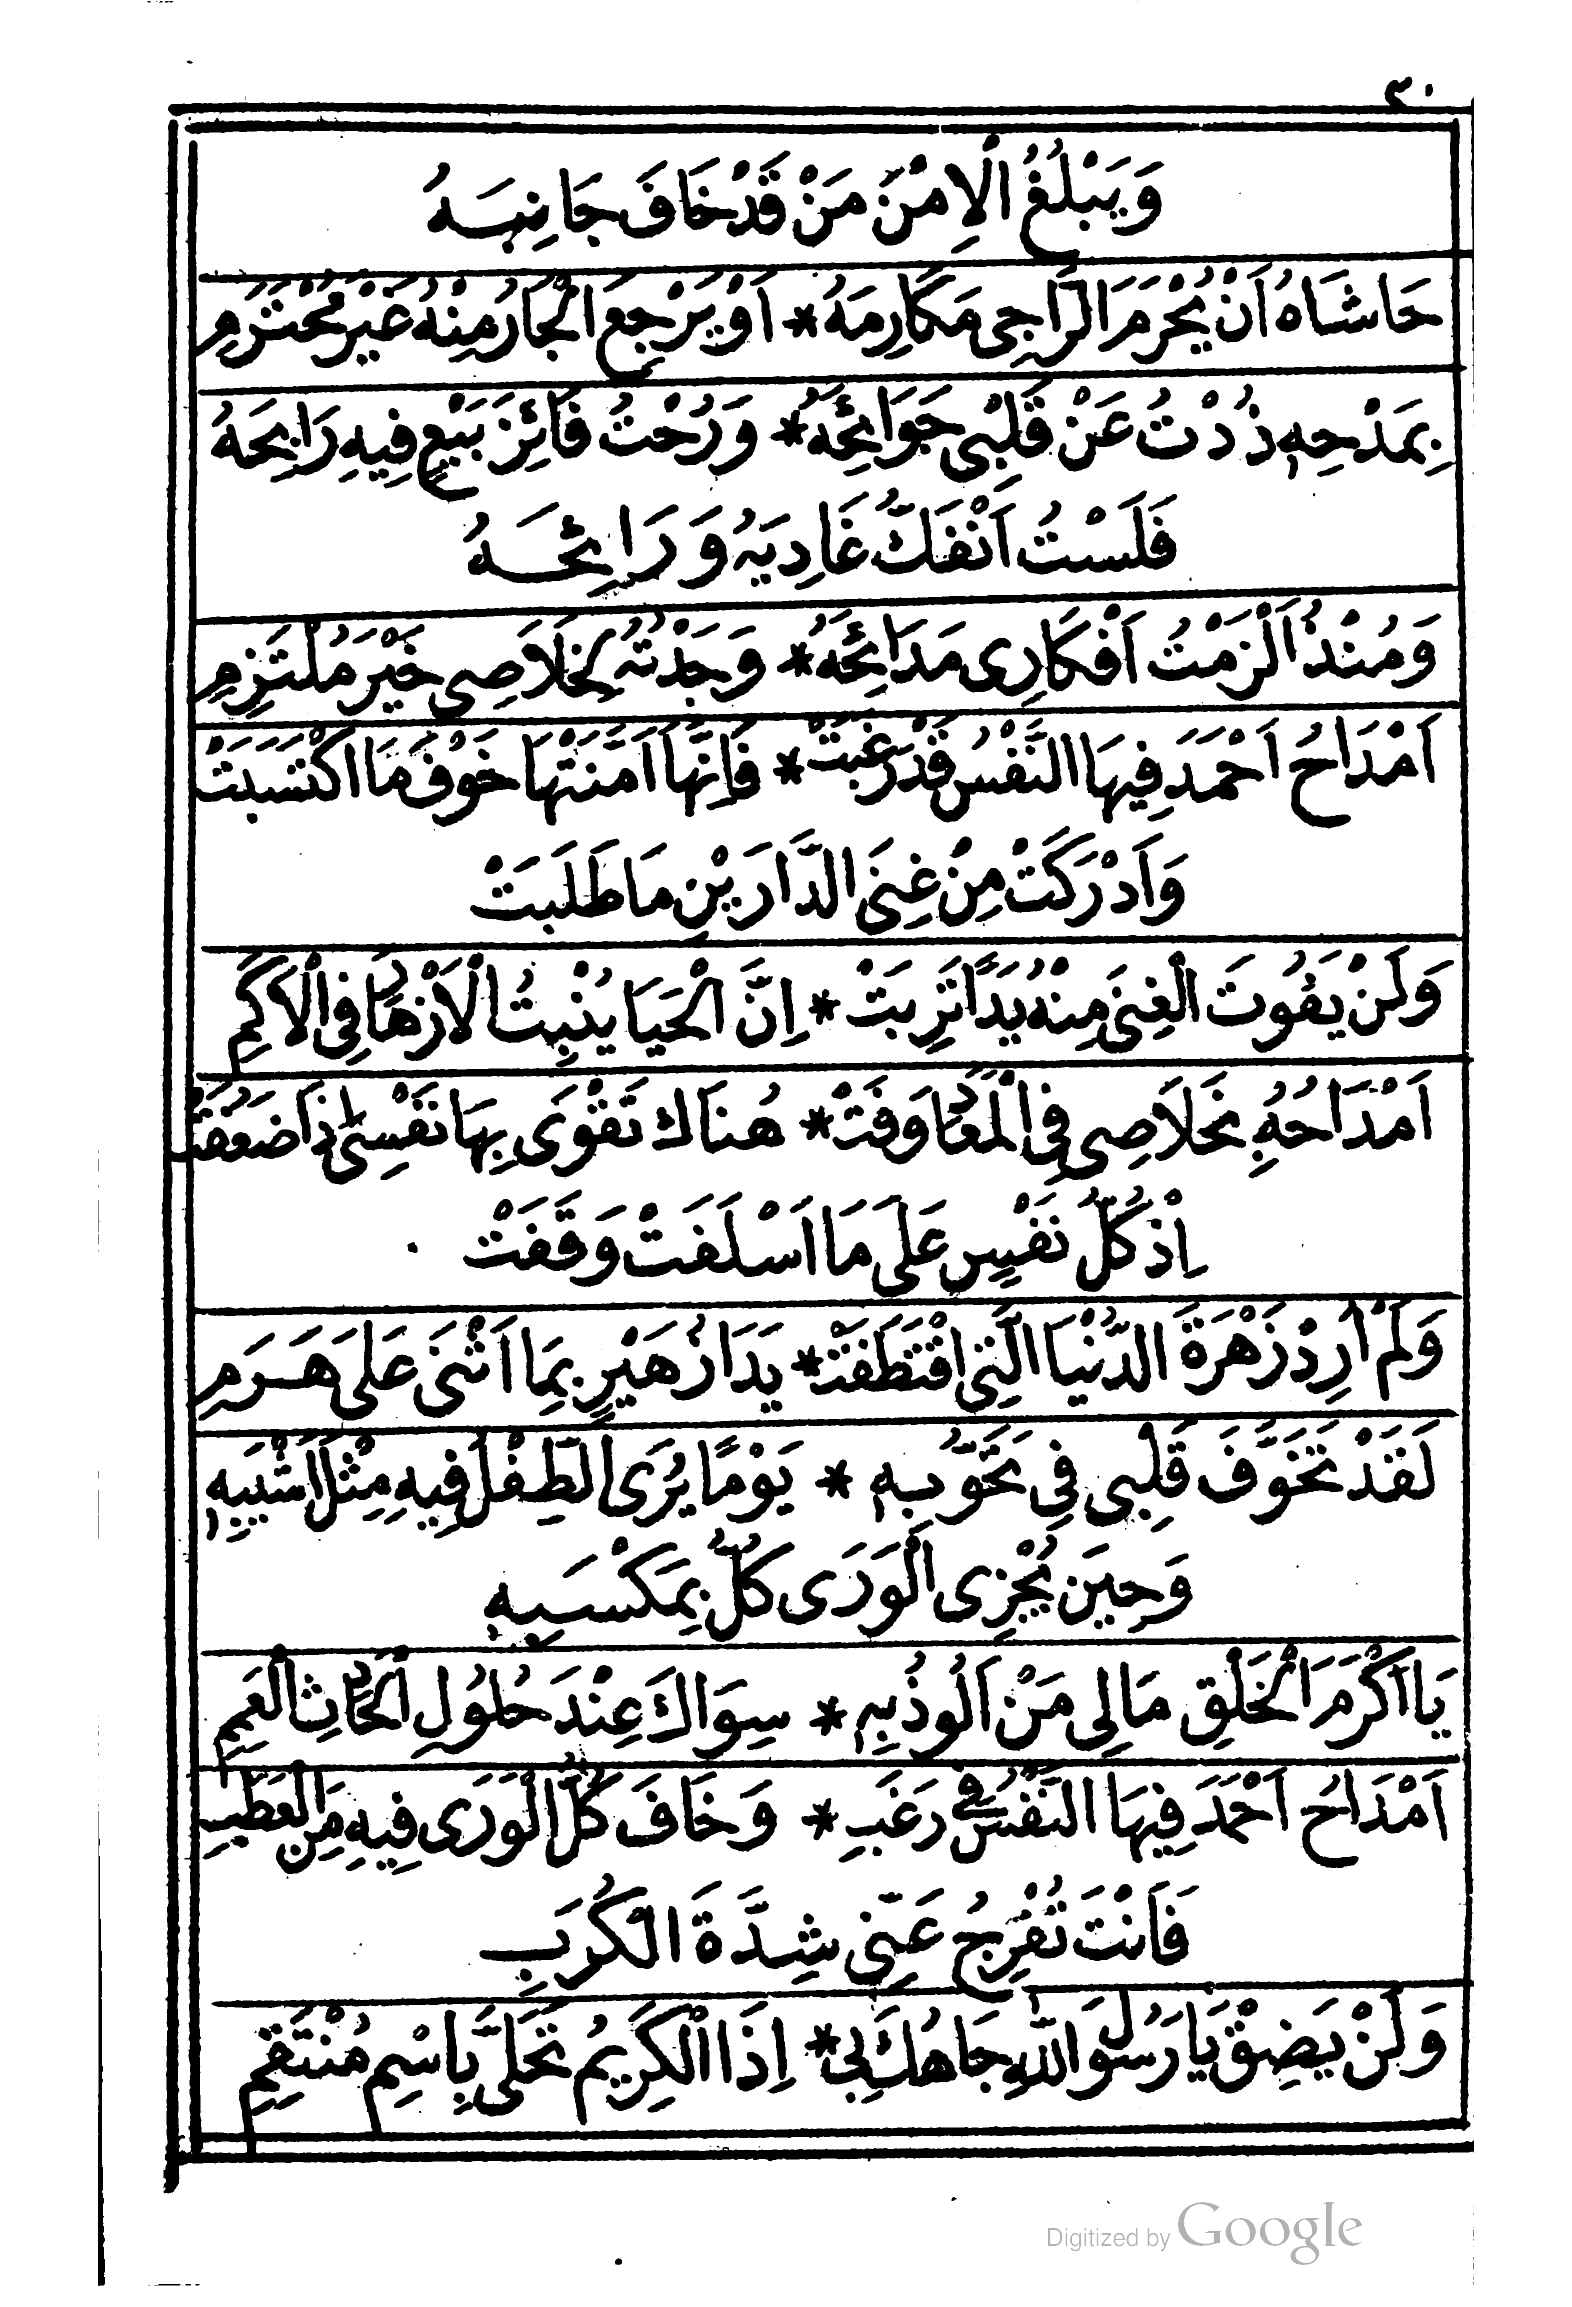 ٣٠
وَيَبْلُغُ الْاِمْنَ مَنْ قَدْ خَافَ جَانِبَهُ
حَاشَاهُ اَنْ يُحْرَمَ الرَّاجِى مَكَارِمَهُ * اَوْ يَرْجِعَ الْجَارُ مِنْهُ غَيْرَ مُحْتَرَمِ
بِمَدْحِهِ ذُدْتُ عَنْ قَلْبِى جَوَائِحَهُ * وَرُحْتُ فَائِزَ بَيْعٍ فِيهِ رَابِحَهُ
فَلَسْتُ اَنْفَكُّ غَادِيَهُ وَرَائِحَهُ
وَمُنْذُ اَلْزَمْتُ اَفْكَارِى مَدَائِحَهُ * وَجَدْتُهُ لِخَلَاصِى خَيْرَ مُلْتَزِمِ
اَمْدَاحُ اَحْمَدَ فِيهَا النَّفْسُ قَدْ رَغِبَتْ * فَاِنَّهَا اَمَّنَتْهَا خَوْفَ مَا اكْتَسَبَتْ
وَاَدْرَكَتْ مِنْ غِنَى الدَّارَيْنِ مَا طَلَبَتْ
وَلَنْ يَفُوتَ الْغِنَى مِنْهُ يَدًا تَرِبَتْ * اِنَّ الْحَيَا يُنْبِتُ الْاَزْهَارَ فِى الْاَكَمِ
اَمْدَاحُهُ بِخَلَاصِى فِى الْمَعَادِ وَفَتْ * هُنَاكَ تَقْوَى بِهَا نَفْسِى اِذَا ضَعُفَتْ
اِذْ كُلُّ نَفْسٍ عَلَى مَا اَسْلَفَتْ وَقَفَتْ
وَلَمْ اُرِدْ زَهْرَةَ الدُّنْيَا الَّتِى اقْتَطَفَتْ * يَدَا زُهَيْرٍ بِمَا اَثْنَى عَلَى هَرَمِ
لَقَدْ تَخَوَّفَ قَلْبِى فِى تَحَوُّبِهِ * يَوْمًا يُرَى الطِّفْلُ فِيهِ مِثْلَ اَشْيَبِهِ
وَحِينَ يُجْزَى الْوَرَى كُلٌّ بِمَكْسَبِهِ
يَا اَكْرَمَ الْخَلْقِ مَالِى مَنْ اَلُوذُ بِهِ * سِوَاكَ عِنْدَ حُلُولِ الْحَادِثِ الْعَمِمِ
اَمْدَاحُ اَحْمَدَ فِيهَا النَّفْسُ فِى رَغَبِ * وَخَافَ كُلُّ الْوَرَى فِيهِ مِنَ الْعَطَبِ
فَاَنْتَ تُفْرِجُ عَنِّى شِدَّةَ الْكُرَبِ
وَلَنْ يَضِيقَ يَا رَسُولَ اللّٰهِ جَاهُكَ بِى * اِذَا الْكَرِيمُ تَحَلَّى بِاسْمِ مُنْتَقِمِ
Digitized by Google